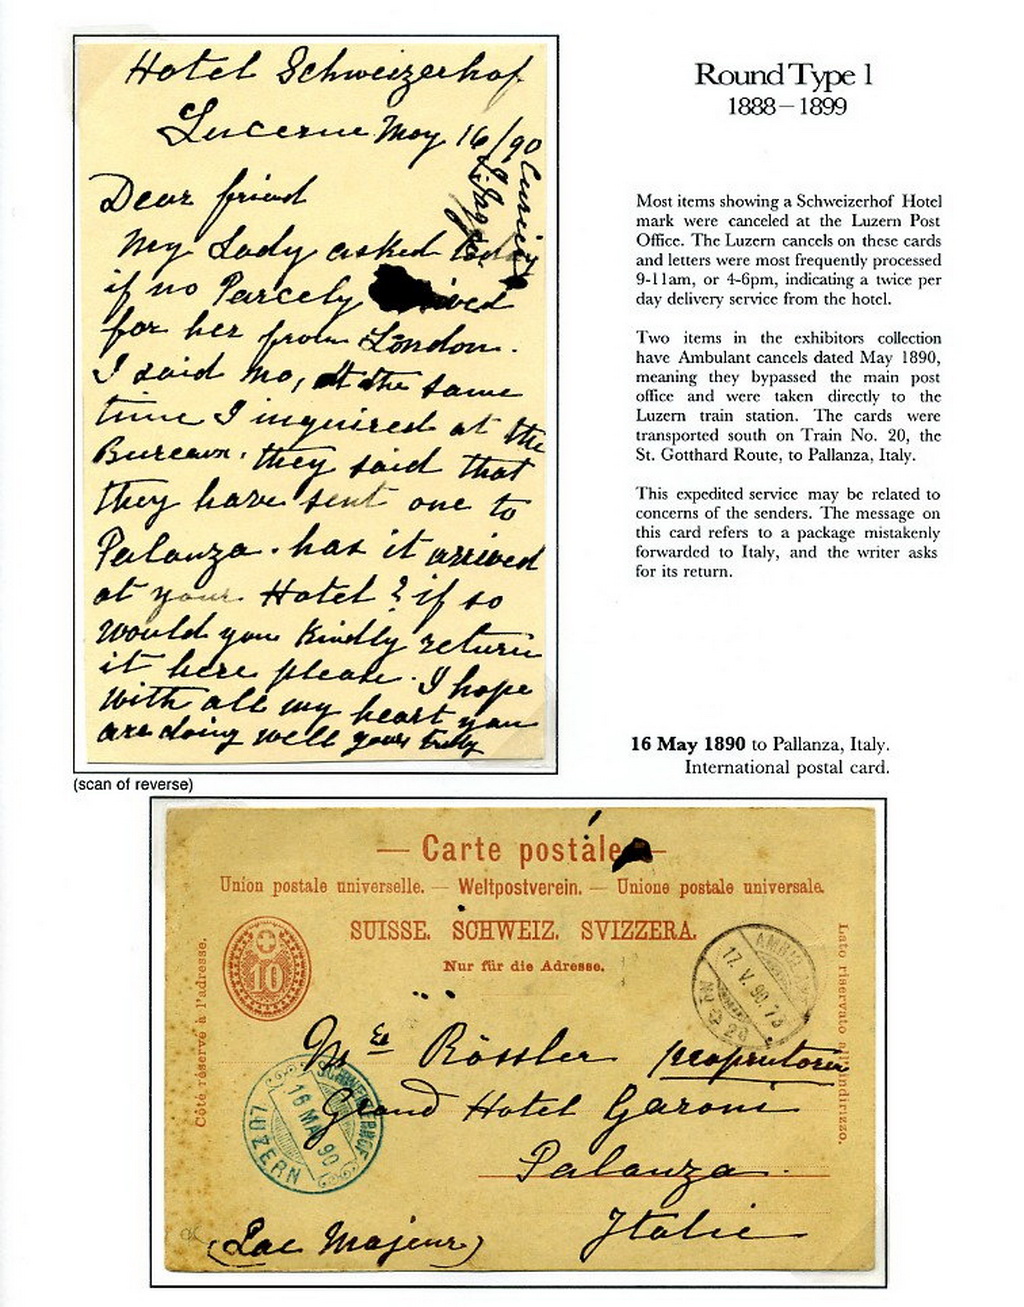 Hotel Schweizerhof
Lucerne May 16/90
Dear friend
My Lady asked
if no Parcely
for her from London.
I said no, at the same
time I inquired at the
Bureaux. they said that
they have sent one to
Palanza. has it arrived
at your Hotel? if so
would you Kindly return
it here please. I hope
with all my heart you
are doing well yours truly
(scan of reverse)
Round Type 1
1888–1899
Most items showing a Schweizerhof Hotel
mark were canceled at the Luzern Post
Office. The Luzern cancels on these cards
and letters were most frequently processed
9-11am, or 4-6pm, indicating a twice per
day delivery service from the hotel.
Two items in the exhibitors collection
have Ambulant cancels dated May 1890,
meaning they bypassed the main post
office and were taken directly to the
Luzern train station. The cards were
transported south on Train No. 20, the
St. Gotthard Route, to Pallanza, Italy.
This expedited service may be related to
concerns of the senders. The message on
this card refers to a package mistakenly
forwarded to Italy, and the writer asks
for its return.
16 May 1890 to Pallanza, Italy.
International postal card.
— Carte postale —
Union postale universelle. — Weltpostverein. — Unione postale universale.
SUISSE. SCHWEIZ. SVIZZERA.
Nur für die Adresse.
10
Côté réservé à l'adresse.
Lato riservato all'indirizzo.
AMBULANT
17. V. 90. 73
No 20
Rössler
Grand Hotel Garoni
Palanza.
Italie
(Lac Majeur)
SCHWEIZERHOF
16 MAI 90
LUZERN